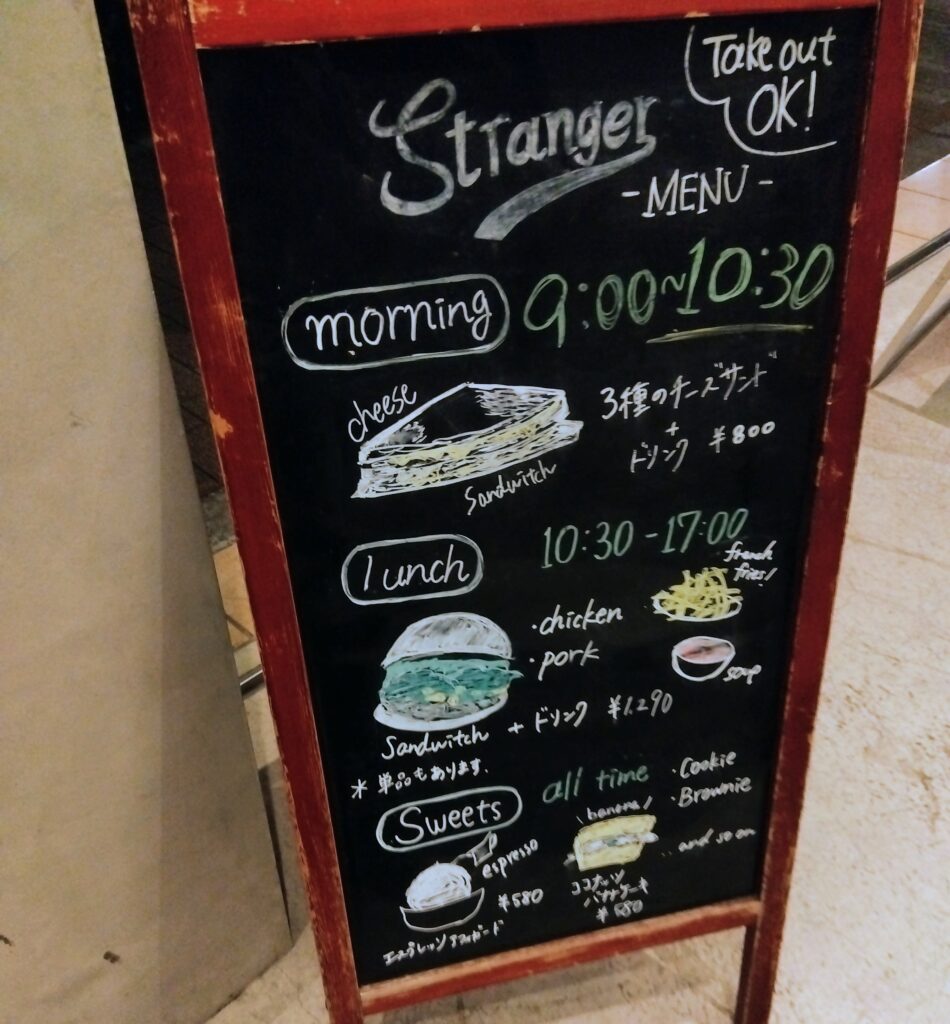 Take out
OK!
Stranger
-MENU-
morning 9:00~10:30
cheese
Sandwitch
3種のチーズサンド
+
ドリンク ¥800
lunch 10:30-17:00
french
fries!
・chicken
・pork
soup
Sandwitch + ドリンク ¥1.290
* 単品もあります.
Sweets all time ・Cookie
・Brownie
..and so on
espresso
¥580
エスプレッソアフォガード
banana
ココナッツ
バナナケーキ
¥580